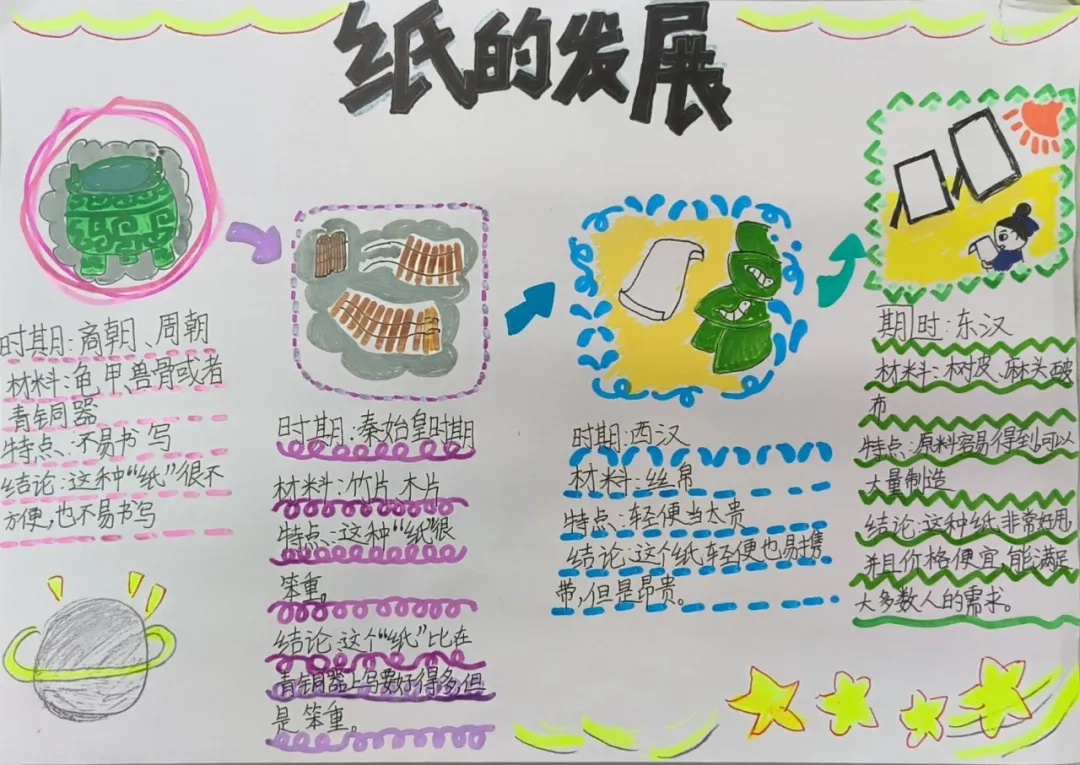 纸的发展
时期:商朝、周朝
材料:龟、甲、兽骨或者
青铜器
特点:不易书写
结论:这种“纸”很不
方便,也不易书写
时期:秦始皇时期
材料:竹片、木片
特点:这种“纸”很
笨重。
结论:这个“纸”比在
青铜器上写要好得多,但
是笨重。
时期:西汉
材料:丝帛
特点:轻便当太贵
结论:这个纸轻便也易携
带,但是昂贵。
期时:东汉
材料:树皮、麻头破
布
特点:原料容易得到可以
大量制造
结论:这种纸,非常好用
并且价格便宜,能满足
大多数人的需求。